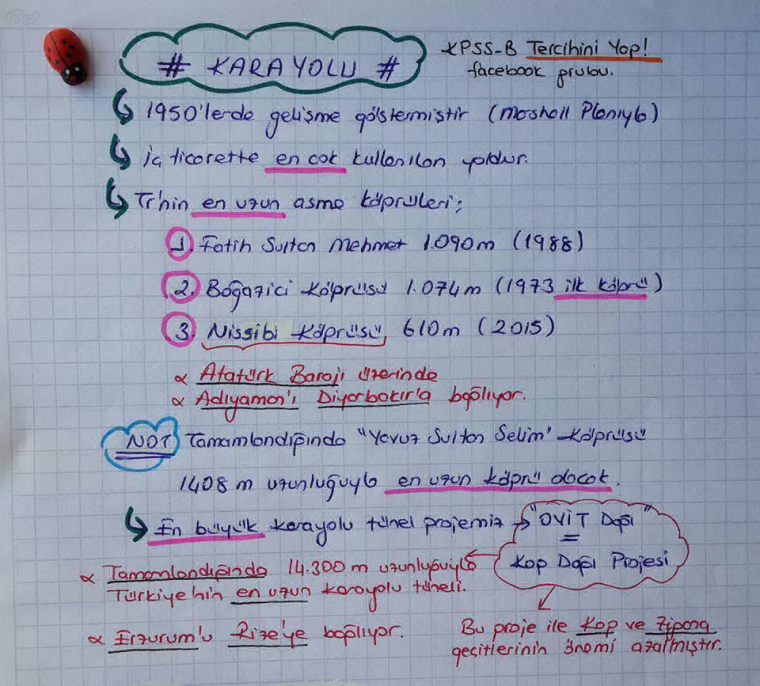 # KARAYOLU #
KPSS-B Tercihini Yap!
facebook grubu.
1950'lerde gelişme göstermiştir (Marshall Planıyla)
İç ticarette en çok kullanılan yoldur.
Tr'nin en uzun asma köprüleri;
1. Fatih Sultan Mehmet 1.090m (1988)
2. Boğaziçi Köprüsü 1.074m (1973 ilk köprü)
3. Nissibi Köprüsü 610m (2015)
α Atatürk Barajı üzerinde
α Adıyaman'ı Diyarbakır'a bağlıyor.
NOT Tamamlandığında "Yavuz Sultan Selim" Köprüsü
1408 m uzunluğuyla en uzun köprü olacak.
En büyük karayolu tünel projemiz → "OVİT Dağı"
=
Kop Dağı Projesi
α Tamamlandığında 14.300 m uzunluğuyla
Türkiye'nin en uzun karayolu tüneli.
α Erzurum'u Rize'ye bağlıyor.
Bu proje ile Kop ve Zigana
geçitlerinin önemi azalmıştır.